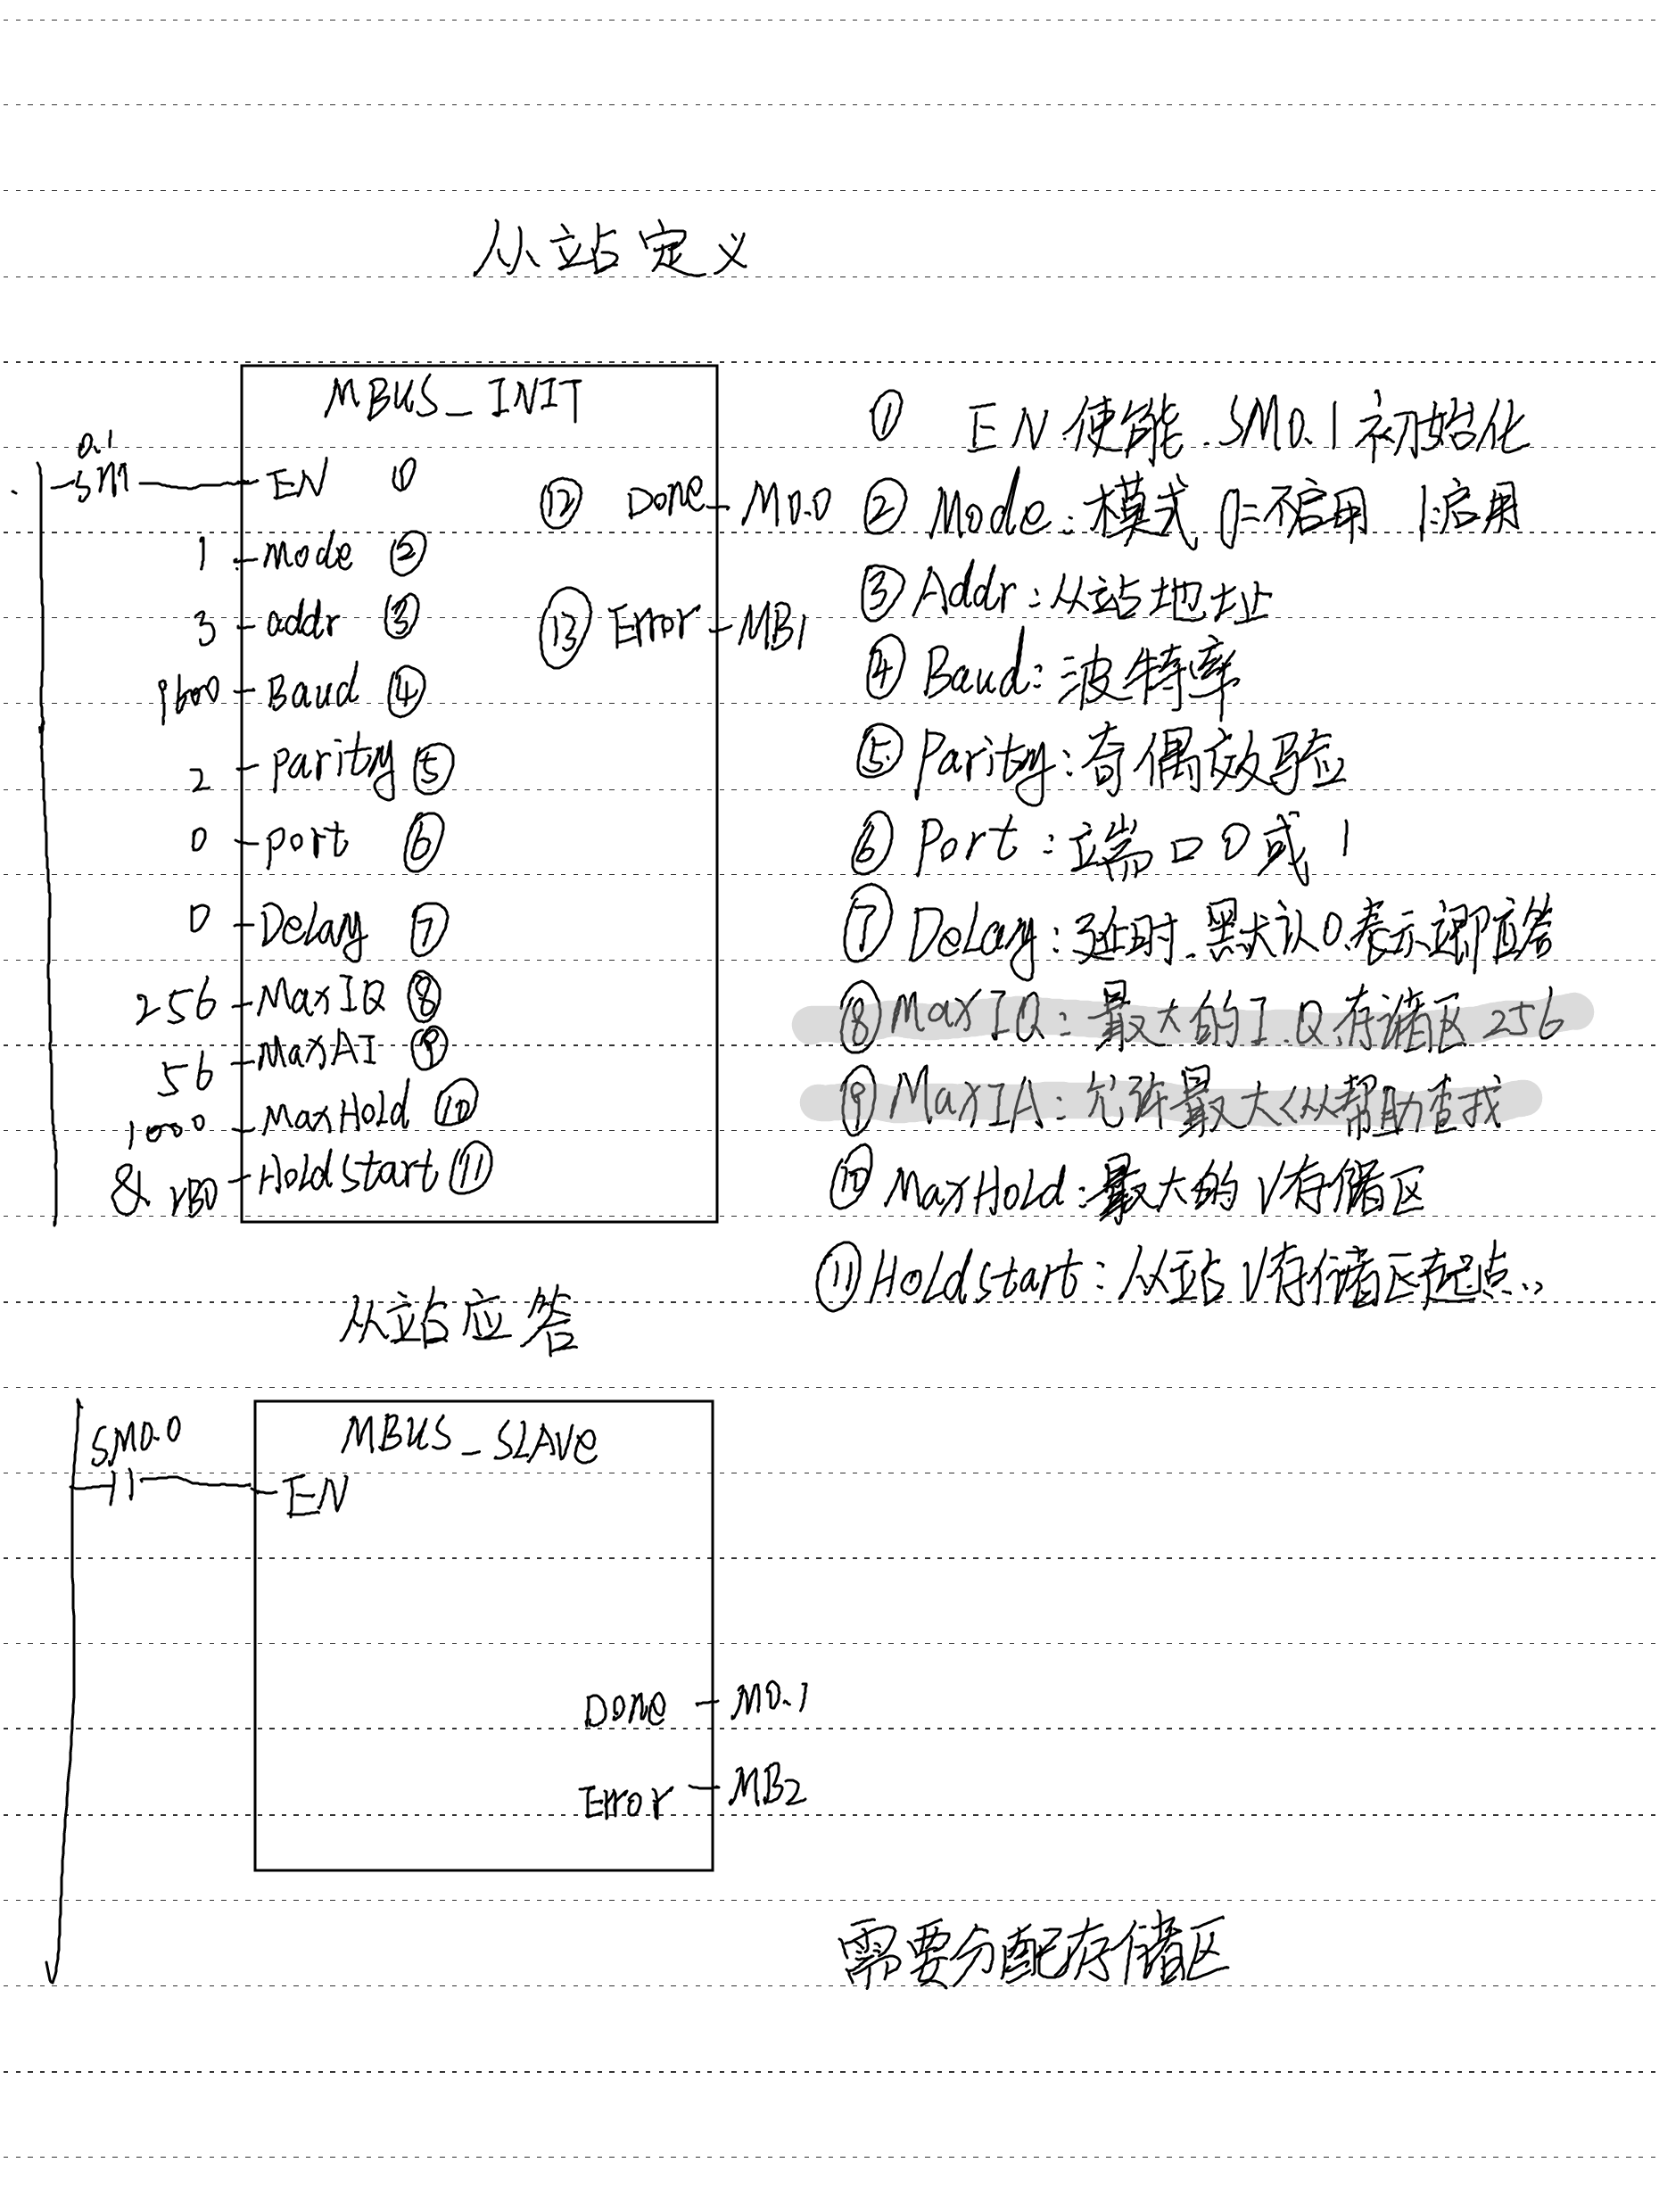 从站定义
MBUS_INIT
0.1
SM EN ①
1 mode ②
3 addr ③
9600 Baud ④
2 parity ⑤
0 port ⑥
0 Delay ⑦
256 MaxIQ ⑧
56 MaxAI ⑨
1000 MaxHold ⑩
& VB0 HoldStart ⑪
⑫ Done M0.0
⑬ Error MB1
① EN 使能.SM0.1初始化
② Mode:模式 0=不启用 1:启用
③ Addr:从站地址
④ Baud:波特率
⑤ Parity:奇偶效验
⑥ Port:端口0或1
⑦ Delay:延时.默认0.表示立即应答
⑧ MaxIQ:最大的I.Q.存储区256
⑨ MaxIA:允许最大<从帮助查找
⑩ MaxHold:最大的V存储区
⑪ Holdstart:从站V存储区起点..
从站应答
MBUS_SLAVe
SM0.0
EN
Done M0.1
Error MB2
需要分配存储区